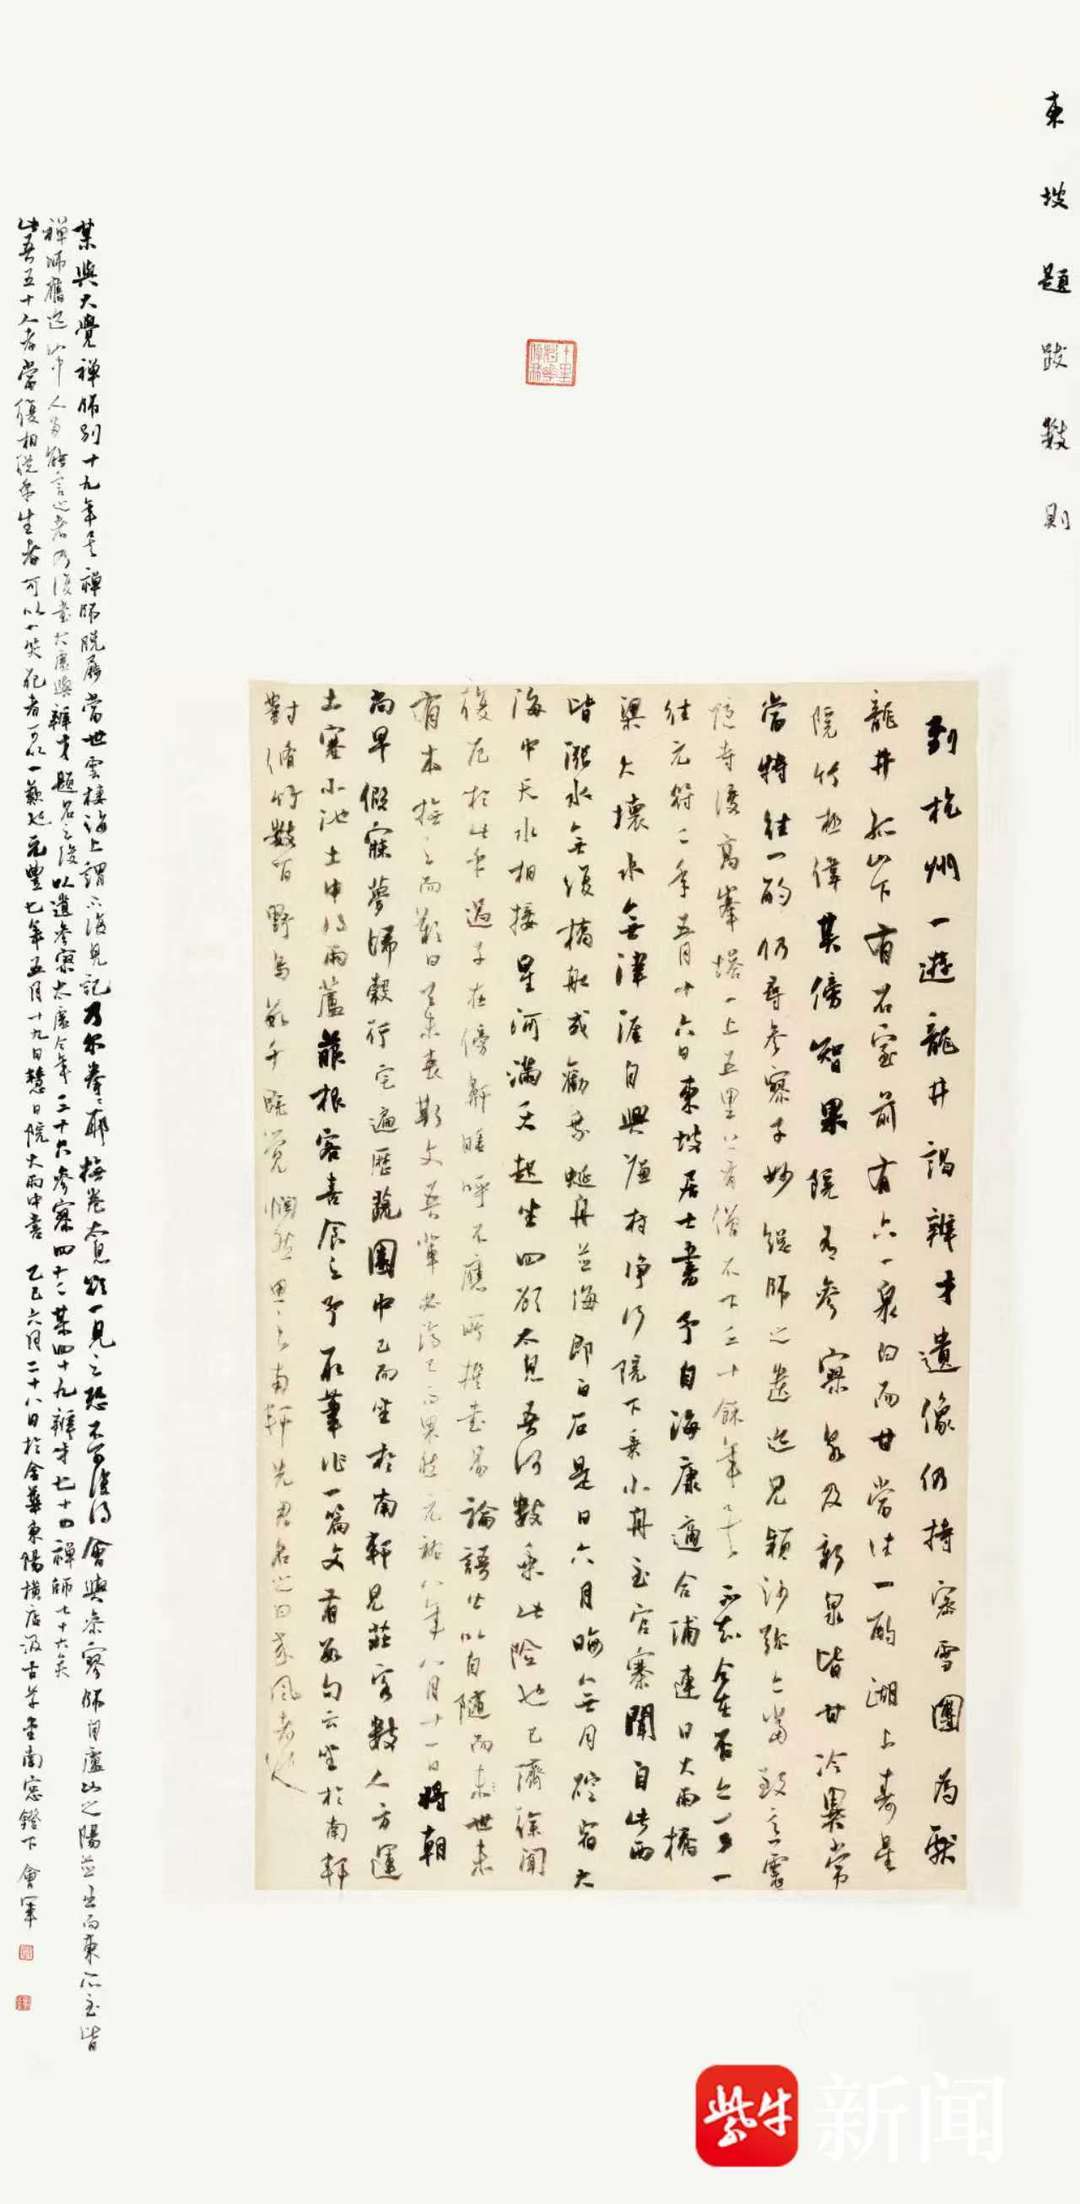 東坡題跋數則
到杭州一遊龍井謁辨才遺像仍持密雪團為獻
龍井孤山下有石室前有六一泉白而甘當往一酌湖上壽星
院竹極偉其傍智果院有參寥泉及新泉皆甘冷異常
當特往一酌仍尋參寥子妙總師之遺迹見穎沙彌亦當致意靈
隱寺後高峯塔一上五里上有僧不下三十餘年矣不知今在否亦可一
往元符二年五月十六日東坡居士書予自海康適合浦連日大雨橋
梁大壞水無津涯自興廉村淨行院下乘小舟至官寨聞自此西
皆漲水無復橋船或勸乘蜑舟並海即白石是日六月晦無月碇宿大
海中天水相接星河滿天起坐四顧太息吾何數乘此險也已濟徐聞
復厄於此乎過子在傍鼾睡呼不應所撰書易論語皆以自隨而世未
有本撫之而歎曰天未喪斯文吾輩必濟已而果然元祐八年八月十一日將朝
尚早假寐夢歸縠行宅遍歷蔬園中已而坐於南軒見莊客數人方運
土塞小池土中得兩蘆菔根客喜食之予取筆作一篇文有數句云坐於南軒
對脩竹數百野鳥數千既覺惘然思之南軒先君名之曰來風者也
某與大覺禪師別十九年矣禪師脫屣當世雲棲海上謂不復見記乃爾拳拳耶撫卷太息欲一見之恐不可復得會與參寥師自廬山之陽並出而東所至皆
禪師舊迹山中人多能言之者乃復書太虛與辨才題名之後以遺參寥太虛今年三十六參寥四十二某四十九辨才七十四禪師七十六矣
此吾五十人者當復相從乎生者可以一笑死者可以一歎也元豐七年五月十九日慧日院大雨中書 乙巳六月二十八日於金華東陽橫店汲古草堂南窗鐙下 會軍
紫牛新闻